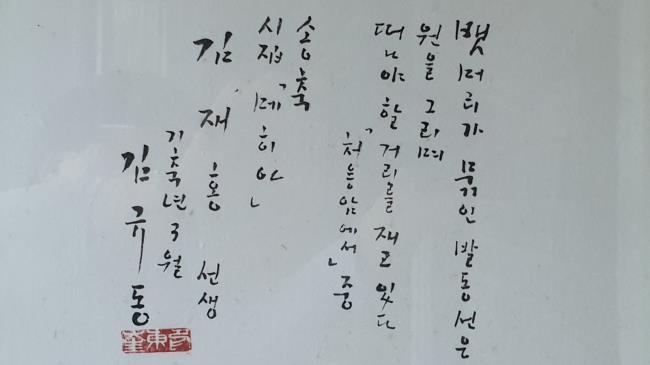 뱃머리가 묶인 발동선은
원을 그리며
떠나야할 거리를 재고 있다
「처용암에서」 중
송축
시집 「메히아」
김 재 홍 선생
기축년 3월
김 규 동